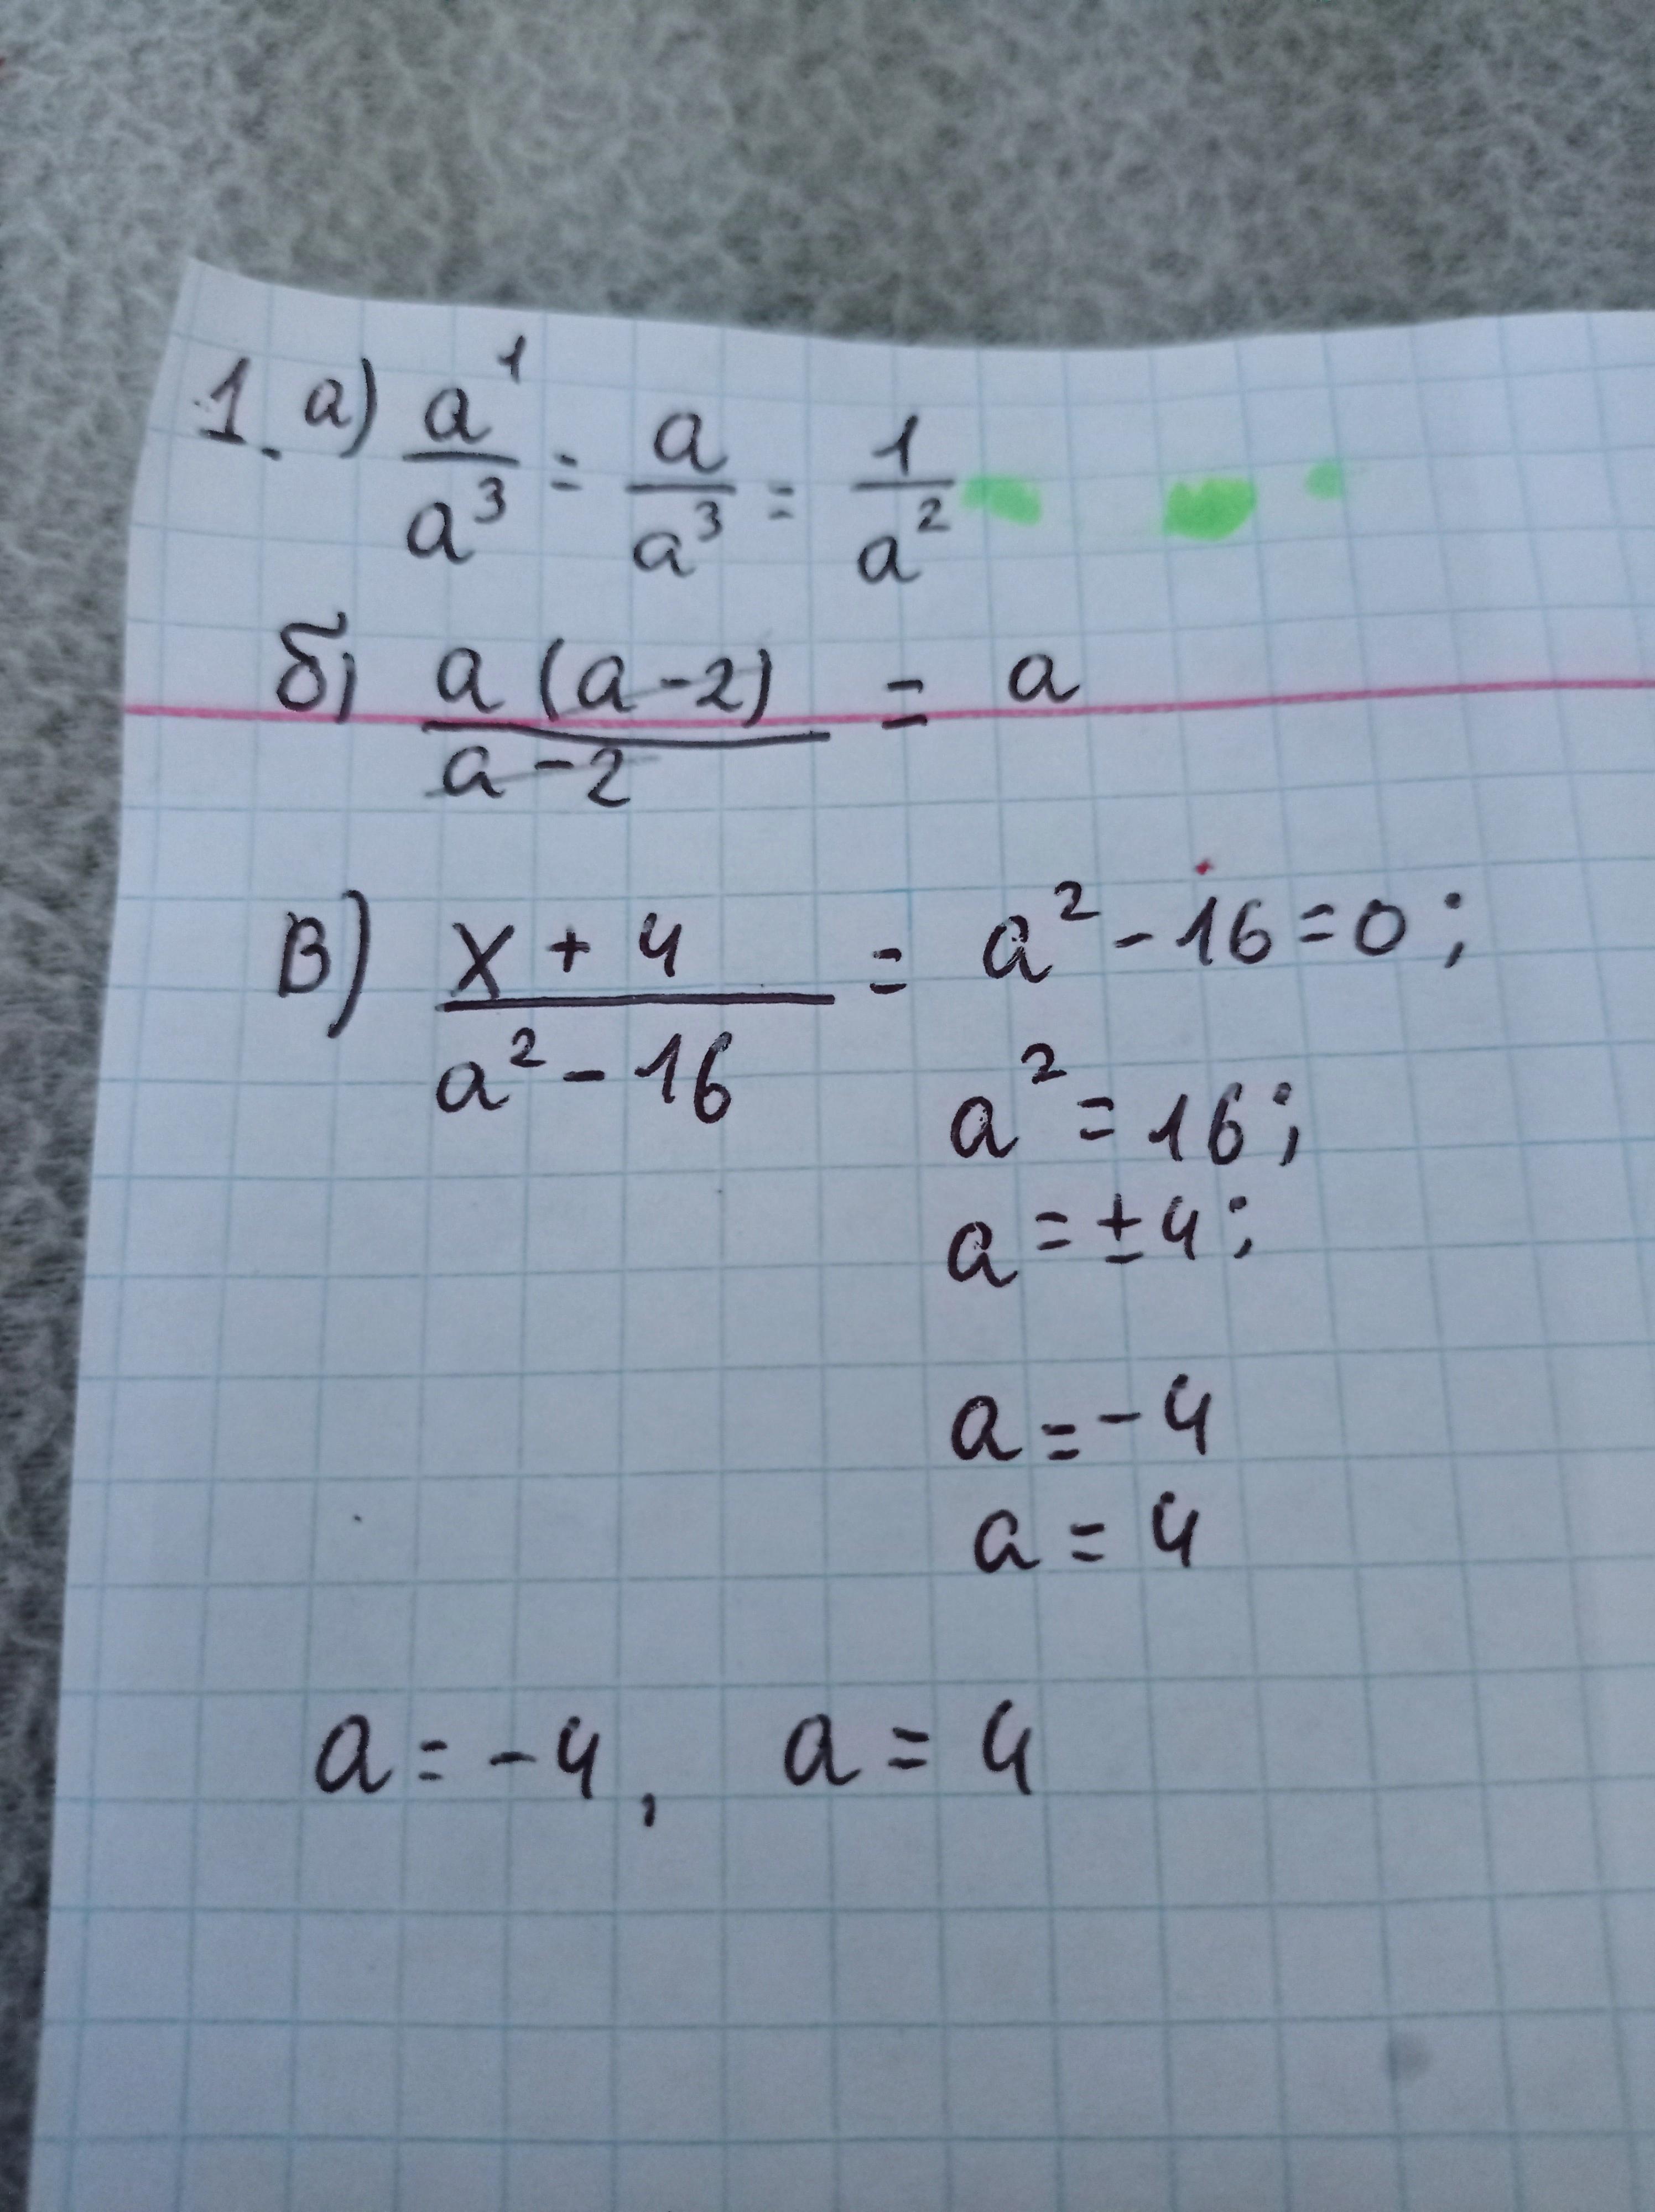 1. а) a¹/a³ = a/a³ = 1/a²
б) a(a-2)/a-2 = a
в) x+4/a²-16 = a²-16=0;
a²=16;
a=±4;
a=-4
a=4
a=-4, a=4